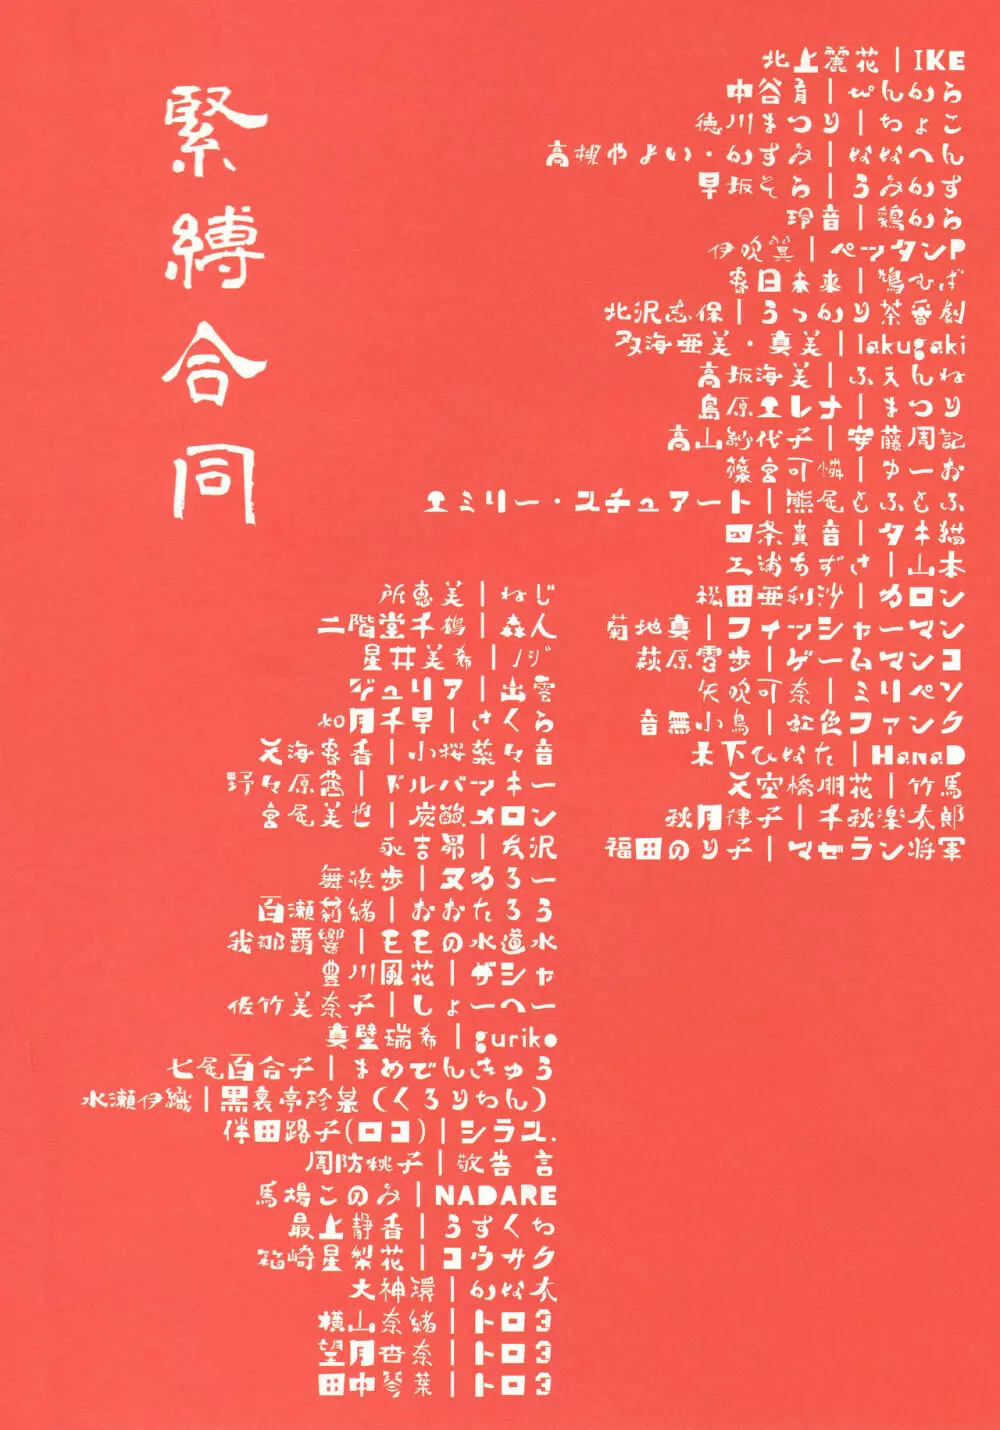 緊縛合同
北上麗花|IKE
中谷育|ぴんから
徳川まつり|ちょこ
高槻やよい・かすみ|ななへん
早坂そら|うみかず
玲音|鶏から
伊吹翼|ペッタンP
春日未来|鳩むぎ
北沢志保|うっかり茶番劇
双海亜美・真美|lakugaki
高坂海美|ふえんね
島原エレナ|まつり
高山紗代子|安藤周記
篠宮可憐|ゆーお
エミリー・スチュアート|熊尾もふもふ
四条貴音|タキ猫
三浦あずさ|山本
松田亜利沙|カロン
菊地真|フィッシャーマン
萩原雪歩|ゲームマンコ
矢吹可奈|ミリペン
音無小鳥|虹色ファンク
木下ひなた|HanaD
天空橋朋花|竹馬
秋月律子|千秋楽太郎
福田のり子|マゼラン将軍
所恵美|ねじ
二階堂千鶴|森人
星井美希|ノジ
ジュリア|出雲
如月千早|さくら
天海春香|小桜菜々音
野々原茜|ドルバッキー
宮尾美也|炭酸メロン
永吉昴|友沢
舞浜歩|ヌカろー
百瀬莉緒|おおたろう
我那覇響|モモの水道水
豊川風花|ザシャ
佐竹美奈子|しょーへー
真壁瑞希|guriko
七尾百合子|まめでんきゅう
水瀬伊織|黒裏亭珍某(くろりちん)
伴田路子(ロコ)|シラス.
周防桃子|敬告言
馬場このみ|NADARE
最上静香|うすくち
箱崎星梨花|コウサク
大神環|かな太
横山奈緒|トロ3
望月杏奈|トロ3
田中琴葉|トロ3